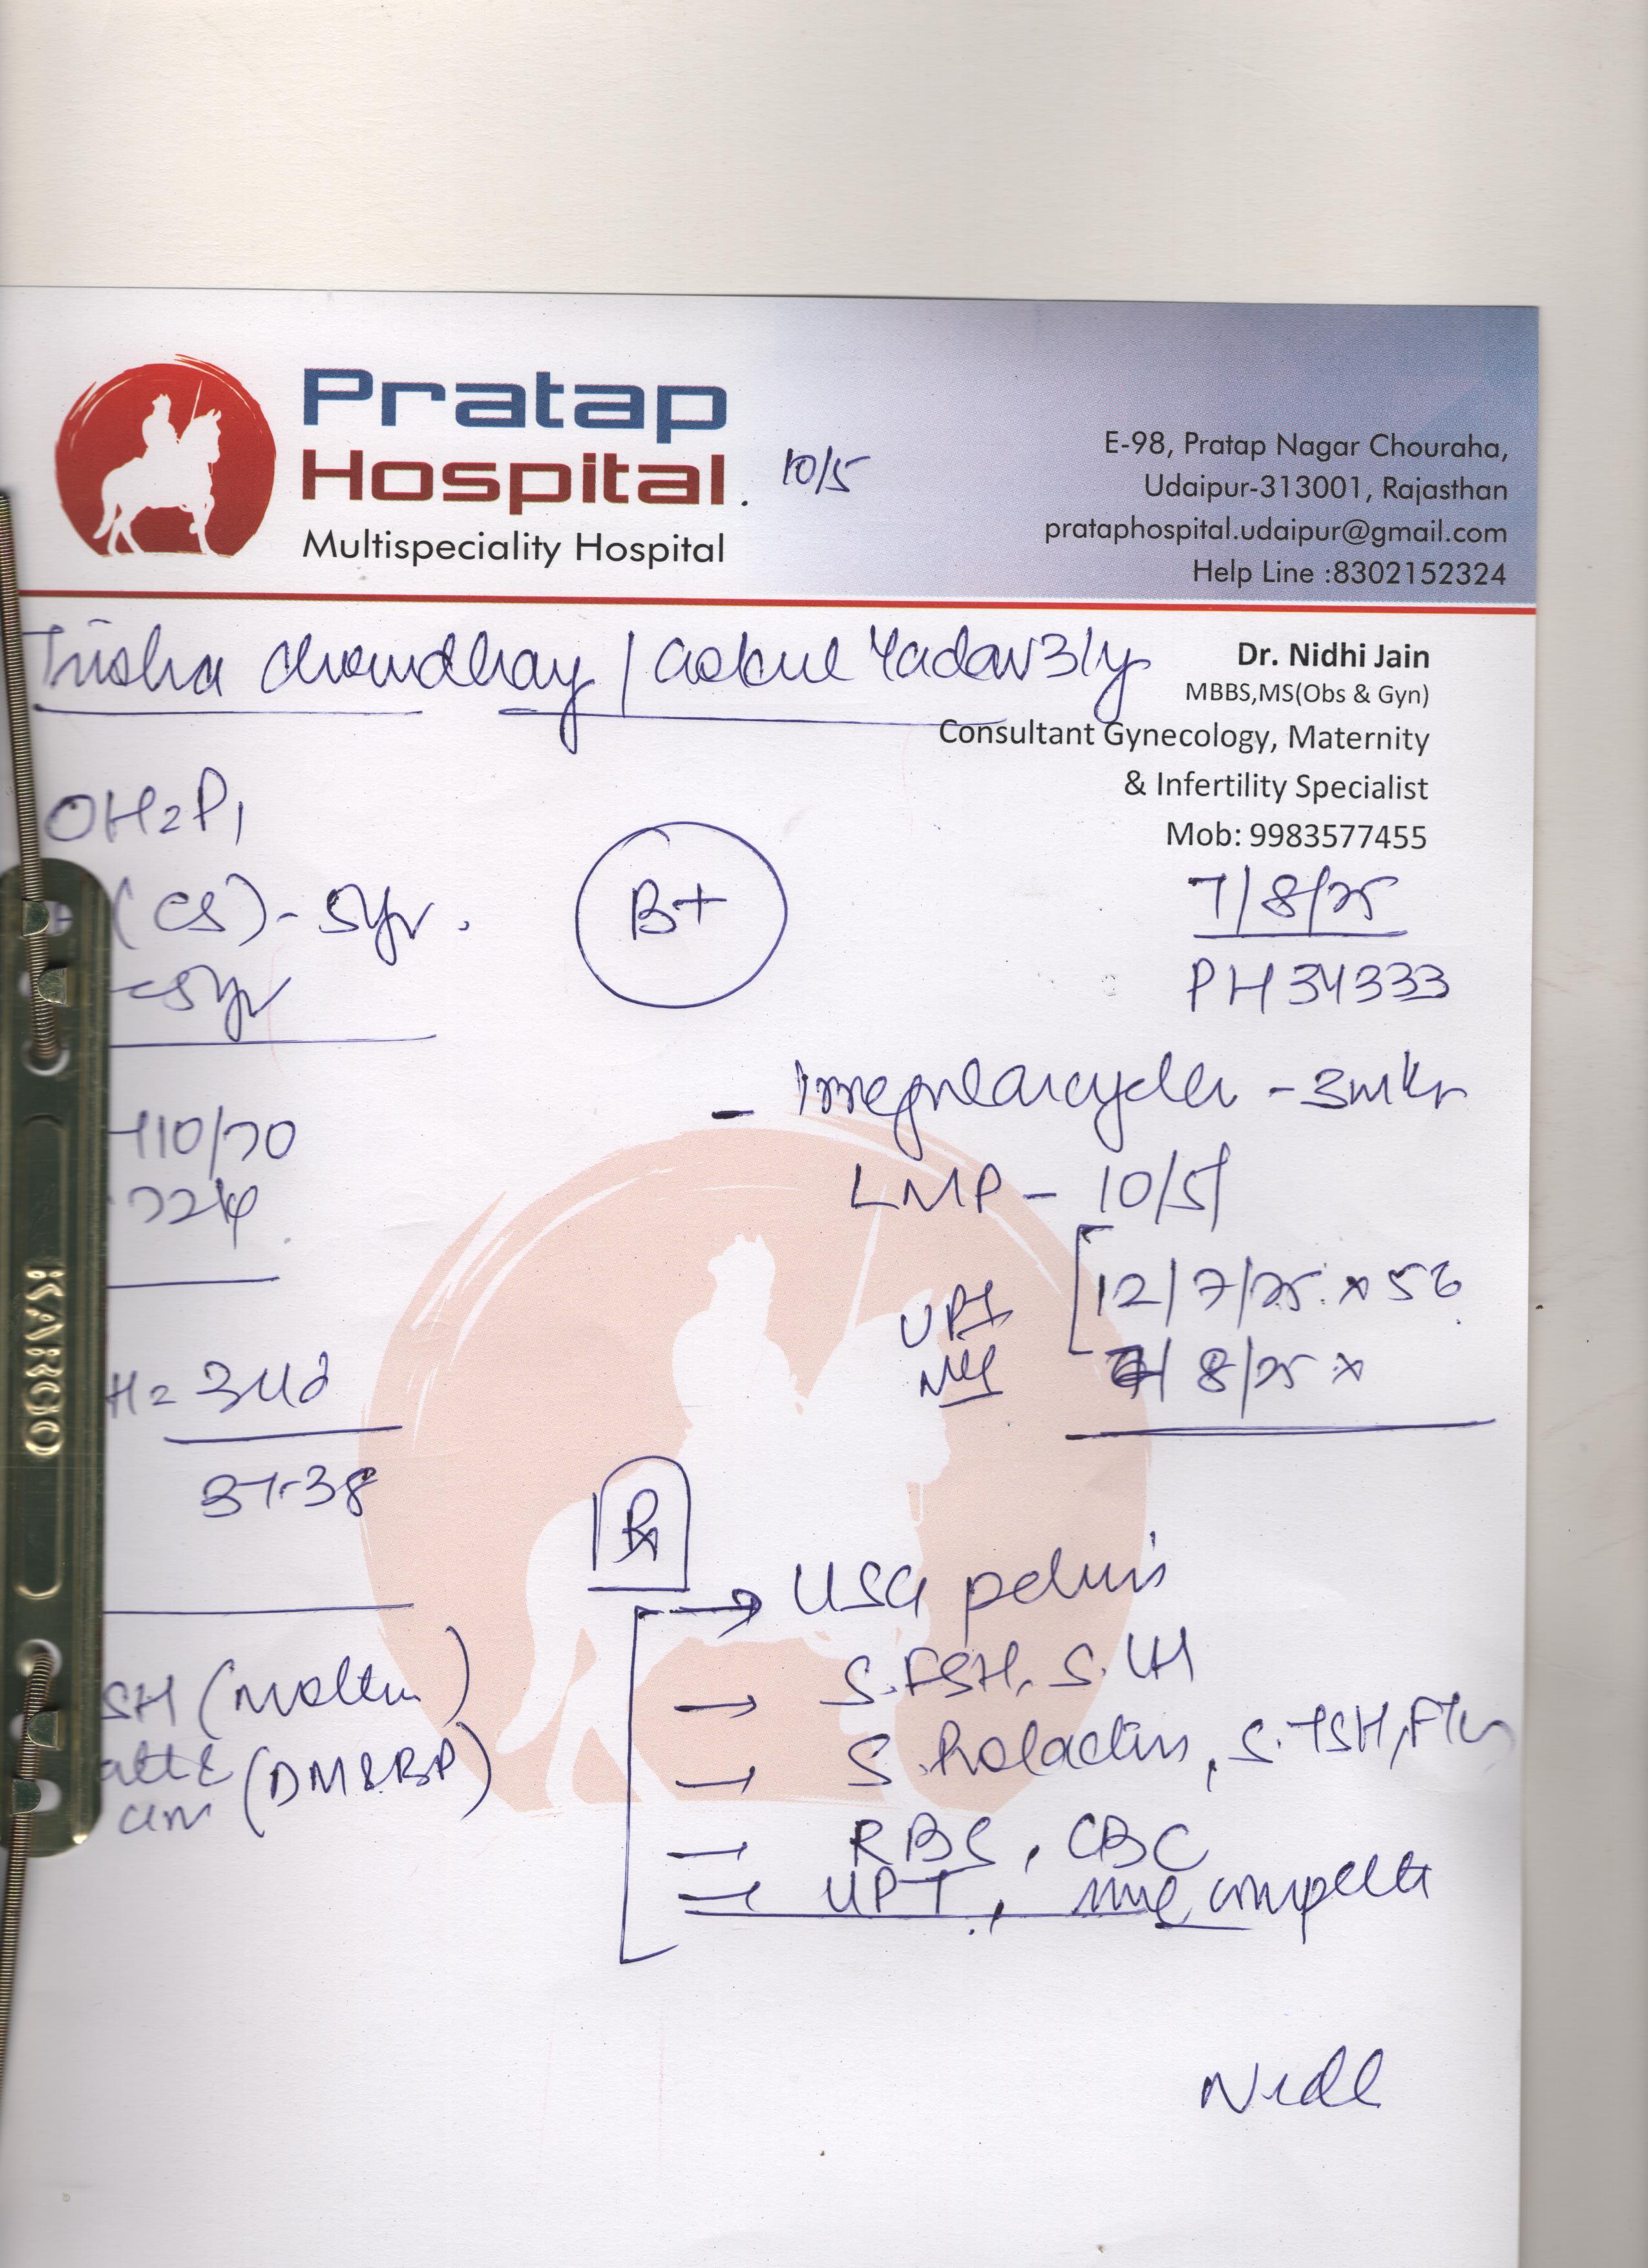 Pratap
Hospital.
Multispeciality Hospital
10/5
E-98, Pratap Nagar Chouraha,
Udaipur-313001, Rajasthan
prataphospital.udaipur@gmail.com
Help Line :8302152324
Trisha Choudhary / Yadav 31y
Dr. Nidhi Jain
MBBS,MS(Obs & Gyn)
Consultant Gynecology, Maternity
& Infertility Specialist
Mob: 9983577455
OH2P1
(CS) - 5yr.
B+
7/8/25
PH 34333
- Irregular cycles -
110/70
LMP - 10/5
UPT
12/7/25 x
8/25 x
KANGO
Rx
→ USG pelvis
→ S.FSH, S.LH
→ S.Prolactin, S.TSH,
→ RBS, CBC
→ UPT, complete
SH (Mother)
(DM & BP)